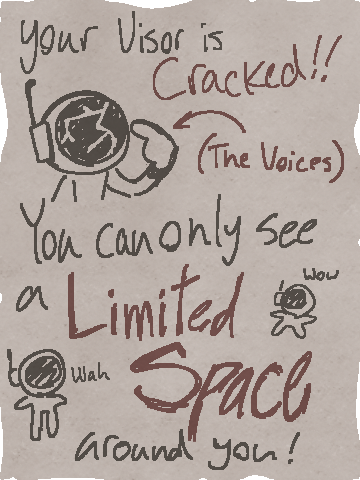 your Visor is
Cracked!!
(The Voices)
You can only see
a Limited
Wow
Wah
Space
around you!